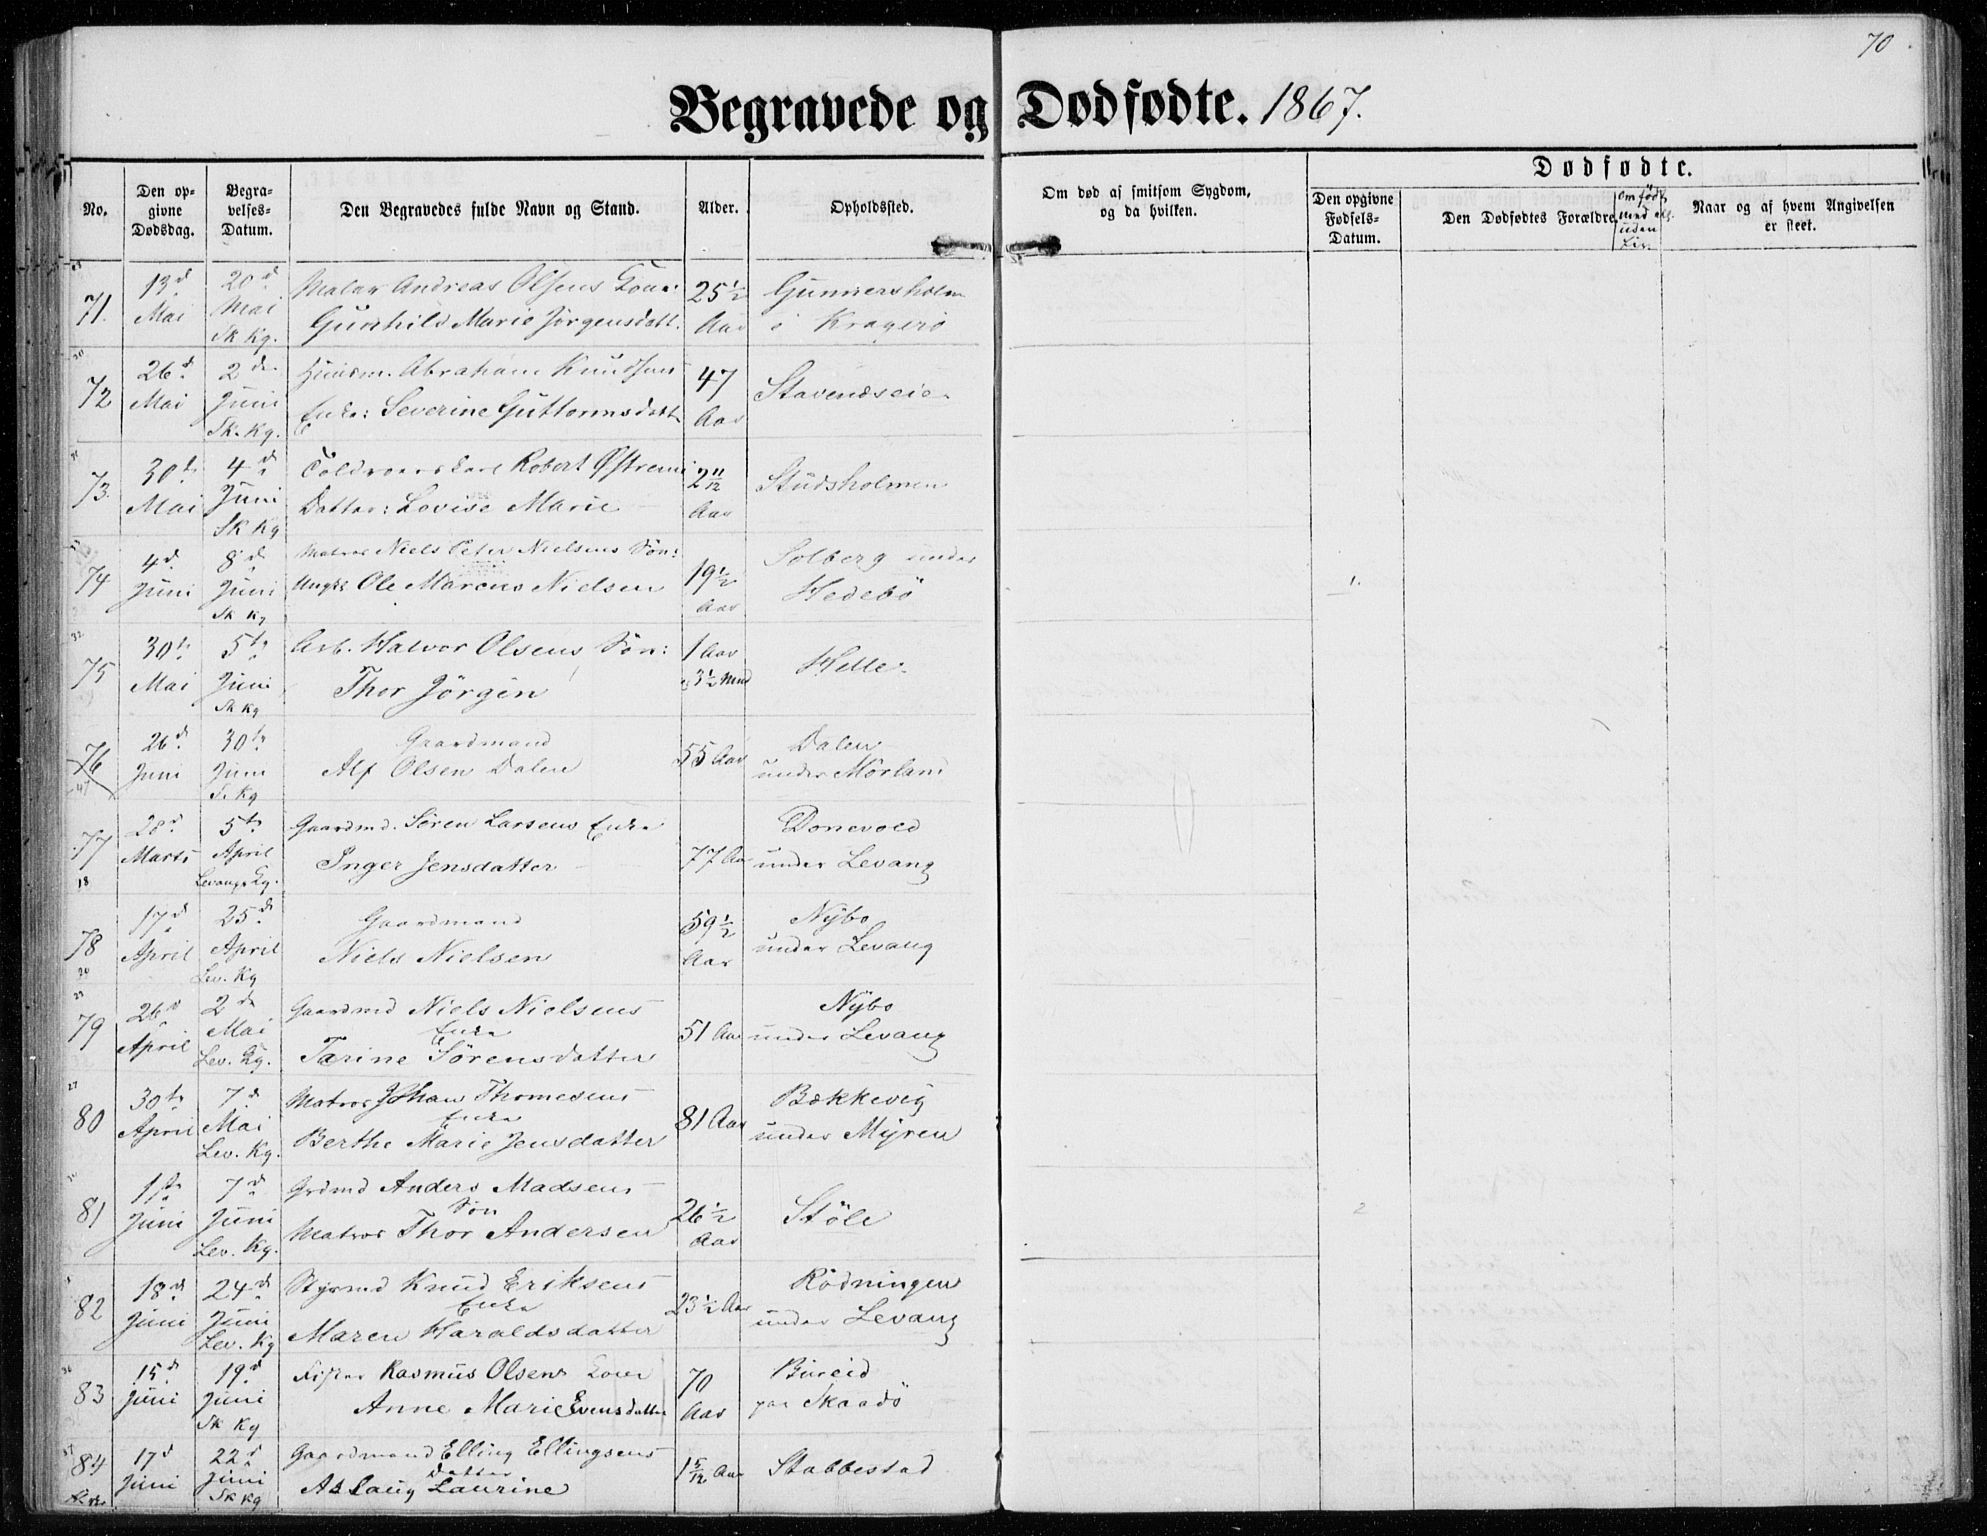 70
Begravede og Dødfødte. 1867.
No.
Den opgivne Dødsdag.
Begravelses-Datum.
Den Begravedes fulde Navn og Stand.
Alder.
Opholdssted.
Om død af smitsom Sygdom, og da hvilken.
Dødfødte.
Den opgivne Fødsels-Datum.
Den Dødfødtes Forældre.
Om født med ell. uden Liv.
Naar og af hvem Angivelsen er skeet.
71. 13d Mai 20d Mai Sk Kg. Andreas Olsens Kone: Gunhild Marie Jörgensdatt. 25½ Aar Gunnersholm i Kragerö
72 26d Mai 2den Juni Sk. Kg. Huusm. Abraham Knudsens Enke: Severine Guttormsdatt 47 Aar Stavenæseie
73. 30te Mai 4de Juni Sk Kg Robert Datter: Lovise Marie 2 11/12 Aar Studsholmen
74 4de Juni 8de Juni Sk Kg Matros Niels Peter Nielsens Sön: Ungk. Ole Marcus Nielsen 19½ Aar Solberg under Hedebö
75 30te Mai 5te Juni Sk Kg Arb. Halvor Olsens Sön: Thor Jörgen 1 Aar 3½ Mnd Helle.
76 26d Juni 30te Juni S. Kg Gaardmand Alf Olsen Dalen 55 Aar Dalen under Mörland
77 18 28d Marts 5te April Levangs Kg. Gaardmd. Sören Larsens Enke Inger Jensdatter 77 Aar Donevold under Levang
78 20 17d April 25de April Lev. Kg Gaardmand Niels Nielsen 59½ Aar Nybo under Levang
79 26d April 2den Mai Lev. Kg. Gaardmd Niels Nielsens Enke Tarine Sörensdatter 51 Aar Nybo under Levang
80 30te April 7de Mai Lev. Kg. Matros Johan Thomesens Enke Berthe Marie Jensdatter 81 Aar Bækkevig under Myren
81 1ste Juni 7de Juni Lev. Kg. Grdmd Anders Madsens Sön Matros Thor Andersen 26½ Aar Stöle
82 18de Juni 24de Juni Lev. Kg Styrmd Knud Eriksens Enke Maren Haraldsdatter 23½ Aar Rödningen under Levang
83 15d Juni 19d Juni Sk Kg Fisker Rasmus Olsens Kone Anne Marie Evensdatter 70 Aar paa Skaadö
84 17d Juni 22d Juni Sk Kg Gaardmand Elling Ellingsens Datter Aslaug Laurine 1 5/12 Aar Stabbestad
1.
2